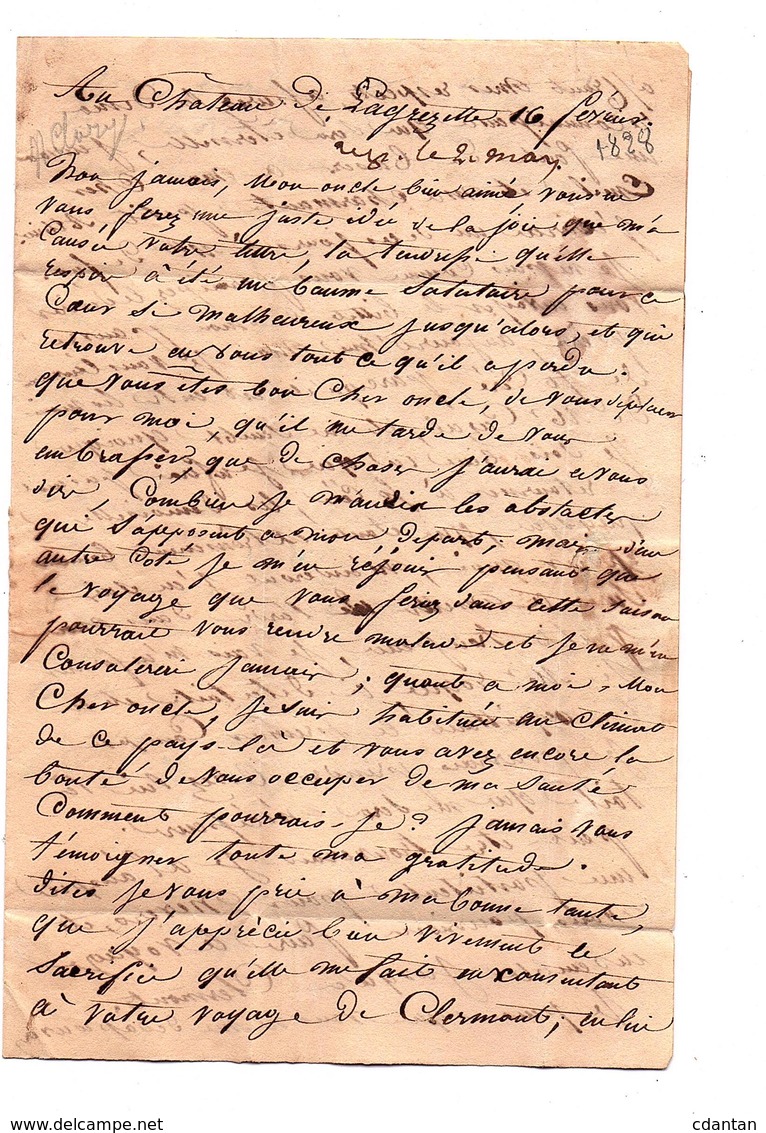 Au Chateau de Lagrezette 16 février.
1828
le 2 mars
Non jamais, Mon oncle bien aimé, vous ne
vous ferez une juste idée de la joie que m'a
Causée votre lettre, la tendresse qu'elle
respire à été un baume salutaire pour ce
Cœur si malheureux jusqu'alors, et qui
retrouve en vous tout ce qu'il a perdu.
que vous êtes bon Cher oncle, de vous déplacer
pour moi qu'il me tarde de vous
embrasser, que de choses j'aurai a vous
dire, Combien je maudis les obstacles
qui s'apposent a mon depart; mais d'un
autre Coté je m'en réjouis pensant que
le voyage que vous feriez dans cette saison
pourrait vous rendre malade et je ne m'en
Consolerai jamais; quant a moi, Mon
Cher oncle, je suis habituée au Climat
de ce pays-là et vous avez encore la
bonté de vous occuper de ma santé
Comment pourrais-je? jamais vous
témoigner toute ma gratitude.
dites je vous prie à ma bonne tante,
que j'apprécie bien vivement le
sacrifice qu'elle me fait en consentant
à votre voyage de Clermont; en lui
cdantan